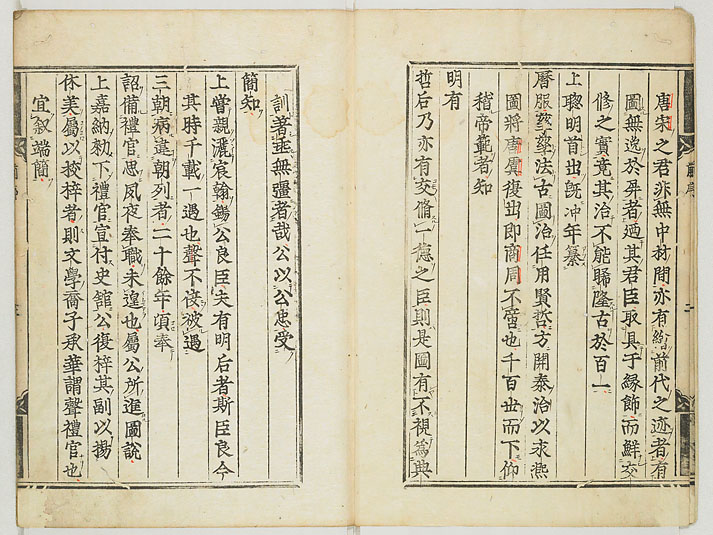 唐宋之君非無中材間亦有繪前代之迹者有
圖無逸於屏者廼其君臣取具于緣飾而鮮交
修之實竟其治不能睎隆古於百一
上聰明首出旣冲年纂
曆服法古圖治任用賢哲方開泰治以求熙
圖將唐虞復出即商周不啻也千百世而下仰
稽帝範者知
明有
哲后乃亦有交脩一德之臣則是圖有不視爲典
訓著垂無疆者哉公以公忠受
簡知
上嘗親灑宸翰錫公良臣夫有明后者斯臣良今
其時千載一遇也聲不佞被遇
三朝病違朝列者二十餘年頃奉
詔備禮官思夙夜奉職未遑也屬公所進圖說
上嘉納勑下禮官宣付史館公復梓其副以揚
休美屬以挍梓者則文學喬子承華謂聲禮官也
宜叙端簡